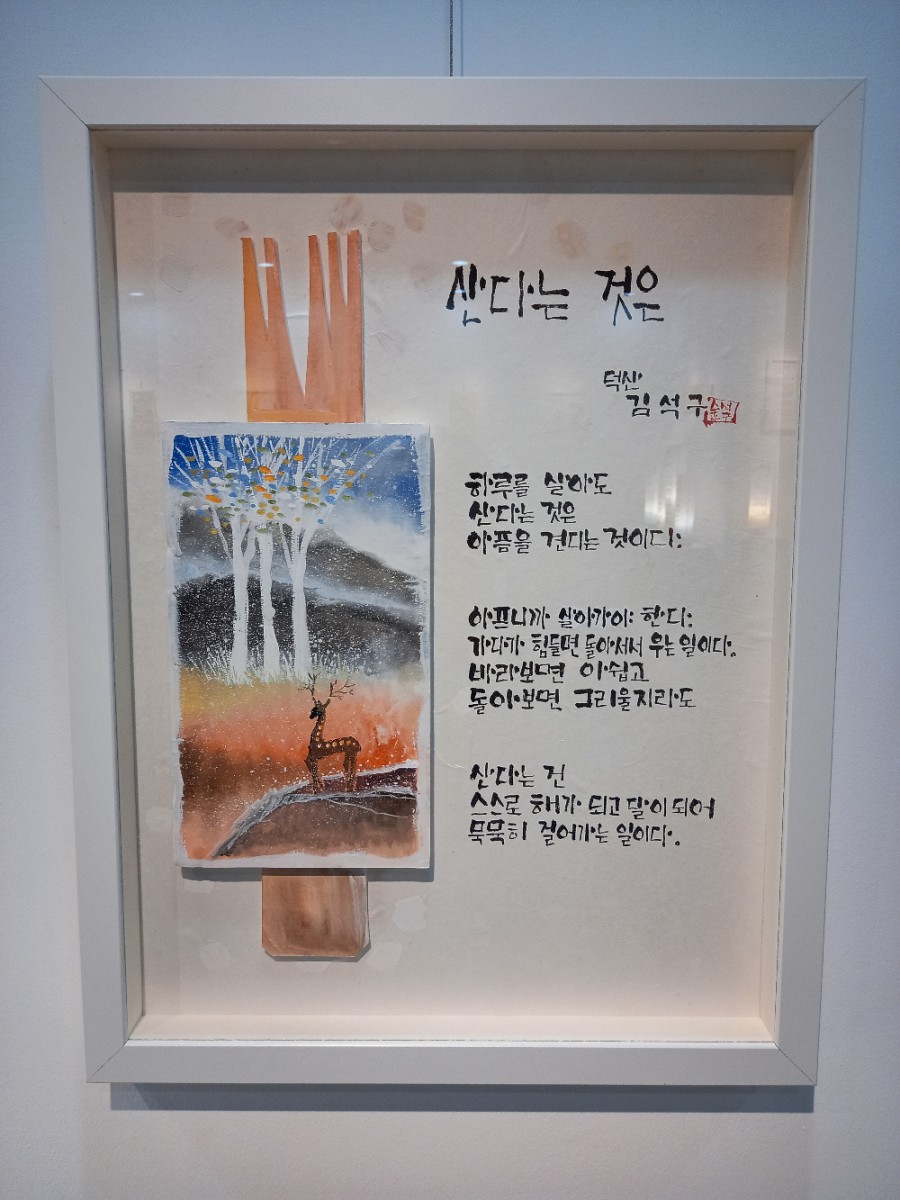 산다는 것은
덕산
김석구
하루를 살아도
산다는 것은
아픔을 견디는 것이다.
아프니까 살아가야 한다.
가다가 힘들면 돌아서서 우는 일이다.
바라보면 아쉽고
돌아보면 그리울지라도
산다는 건
스스로 해가 되고 달이 되어
묵묵히 걸어가는 일이다.